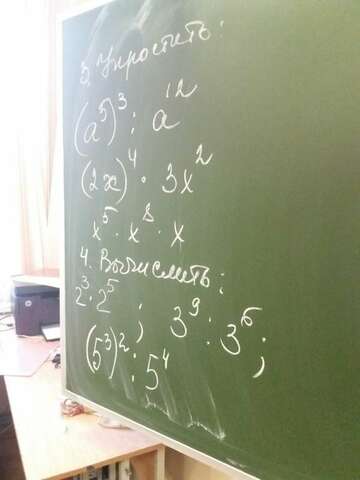 3. Упростить:
(a⁵)³ : a¹²
(2x)⁴ · 3x²
x⁵ · x⁸ · x
4. Вычислить:
2³ · 2⁵ ; 3⁹ : 3⁶ ;
(5³)² : 5⁴